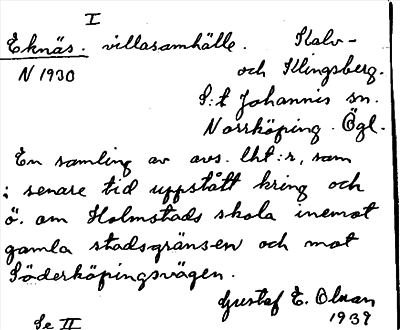 I
Eknäs. villasamhälle. Stalv-
N 1930 och Klingsberg.
S:t Johannis sn.
Norrköping. Ögl.
En samling av avs. lht:r, som
i senare tid uppstått kring och
ö. om Holmstads skola inemot
gamla stadsgränsen och mot
Söderköpingsvägen.
Gustaf E. Olsson
1939
Se II